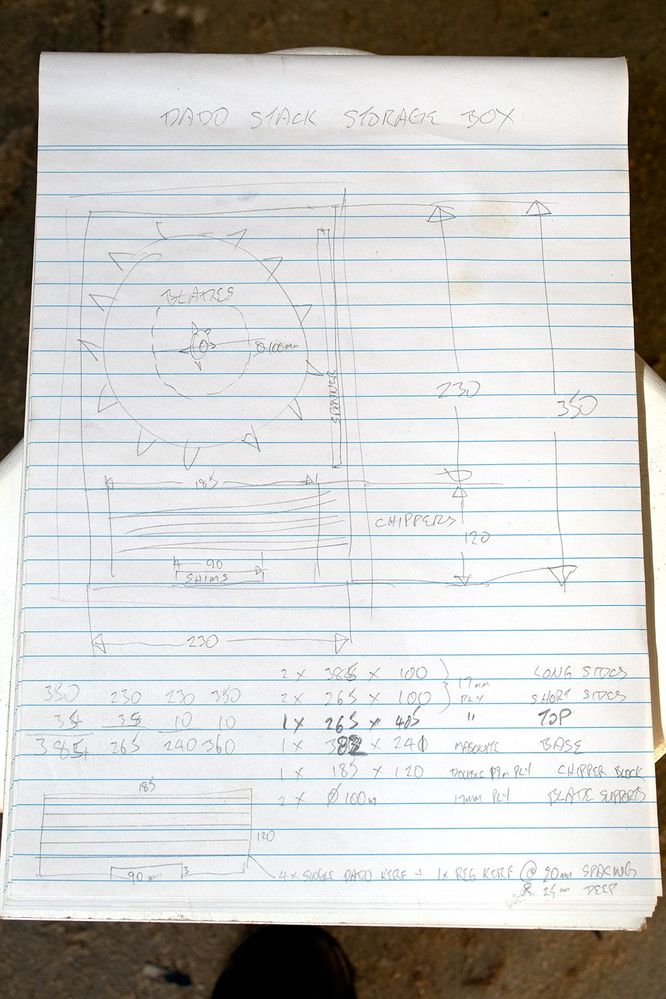 DADO STACK STORAGE BOX
BLADES
Ø100mm
230
350
185
CHIPPERS
120
90
SHIMS
230
2 x 385 x 100 17mm LONG SIDES
350 230 230 350 2 x 265 x 100 PLY SHORT SIDES
35 35 10 10 1 x 265 x " TOP
385 265 240 360 1 x x 241 MASONITE BASE
1 x 185 x 120 DOUBLE 17m PLY CHIPPER BLOCK
2 x Ø 100m 17mm PLY BLADE SUPPORTS
185
120
90 mm
4 x SINGLE DADO KERF + 1x REG KERF @ 20mm SPACING
& 25mm DEEP